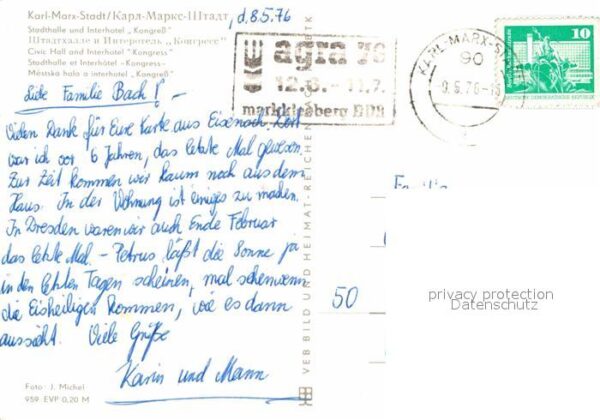 Karl-Marx-Stadt/Карл-Маркс-Штадт
Stadthalle und Interhotel „Kongreß"
Штадтхалле и Интеротель „Конгресс"
Civic Hall and Interhotel "Kongress"
Stadthalle et Interhôtel «Kongress»
Městská hala a interhotel „Kongress"
, d. 8.5.76
Liebe Familie Bach! –
Vielen Dank für Eure Karte aus Eisenach. Dort
war ich vor 6 Jahren, das letzte Mal gewesen.
Zur Zeit kommen wir kaum noch aus dem
Haus. In der Wohnung ist einiges zu machen.
In Dresden waren wir auch Ende Februar
das letzte Mal. – Petrus läßt die Sonne ja
in den letzten Tagen scheinen, mal sehen wenn
die Eisheiligen kommen, wie es dann
aussieht. Viele Grüße
Karin und Mann
Foto: J. Michel
959 EVP 0,20 M
VEB BILD UND HEIMAT REICHENBACH
agra 76
12.6. – 11.7.
markkleeberg DDR
KARL-MARX-S
90
9.5.76
10
50
privacy protection
Datenschutz